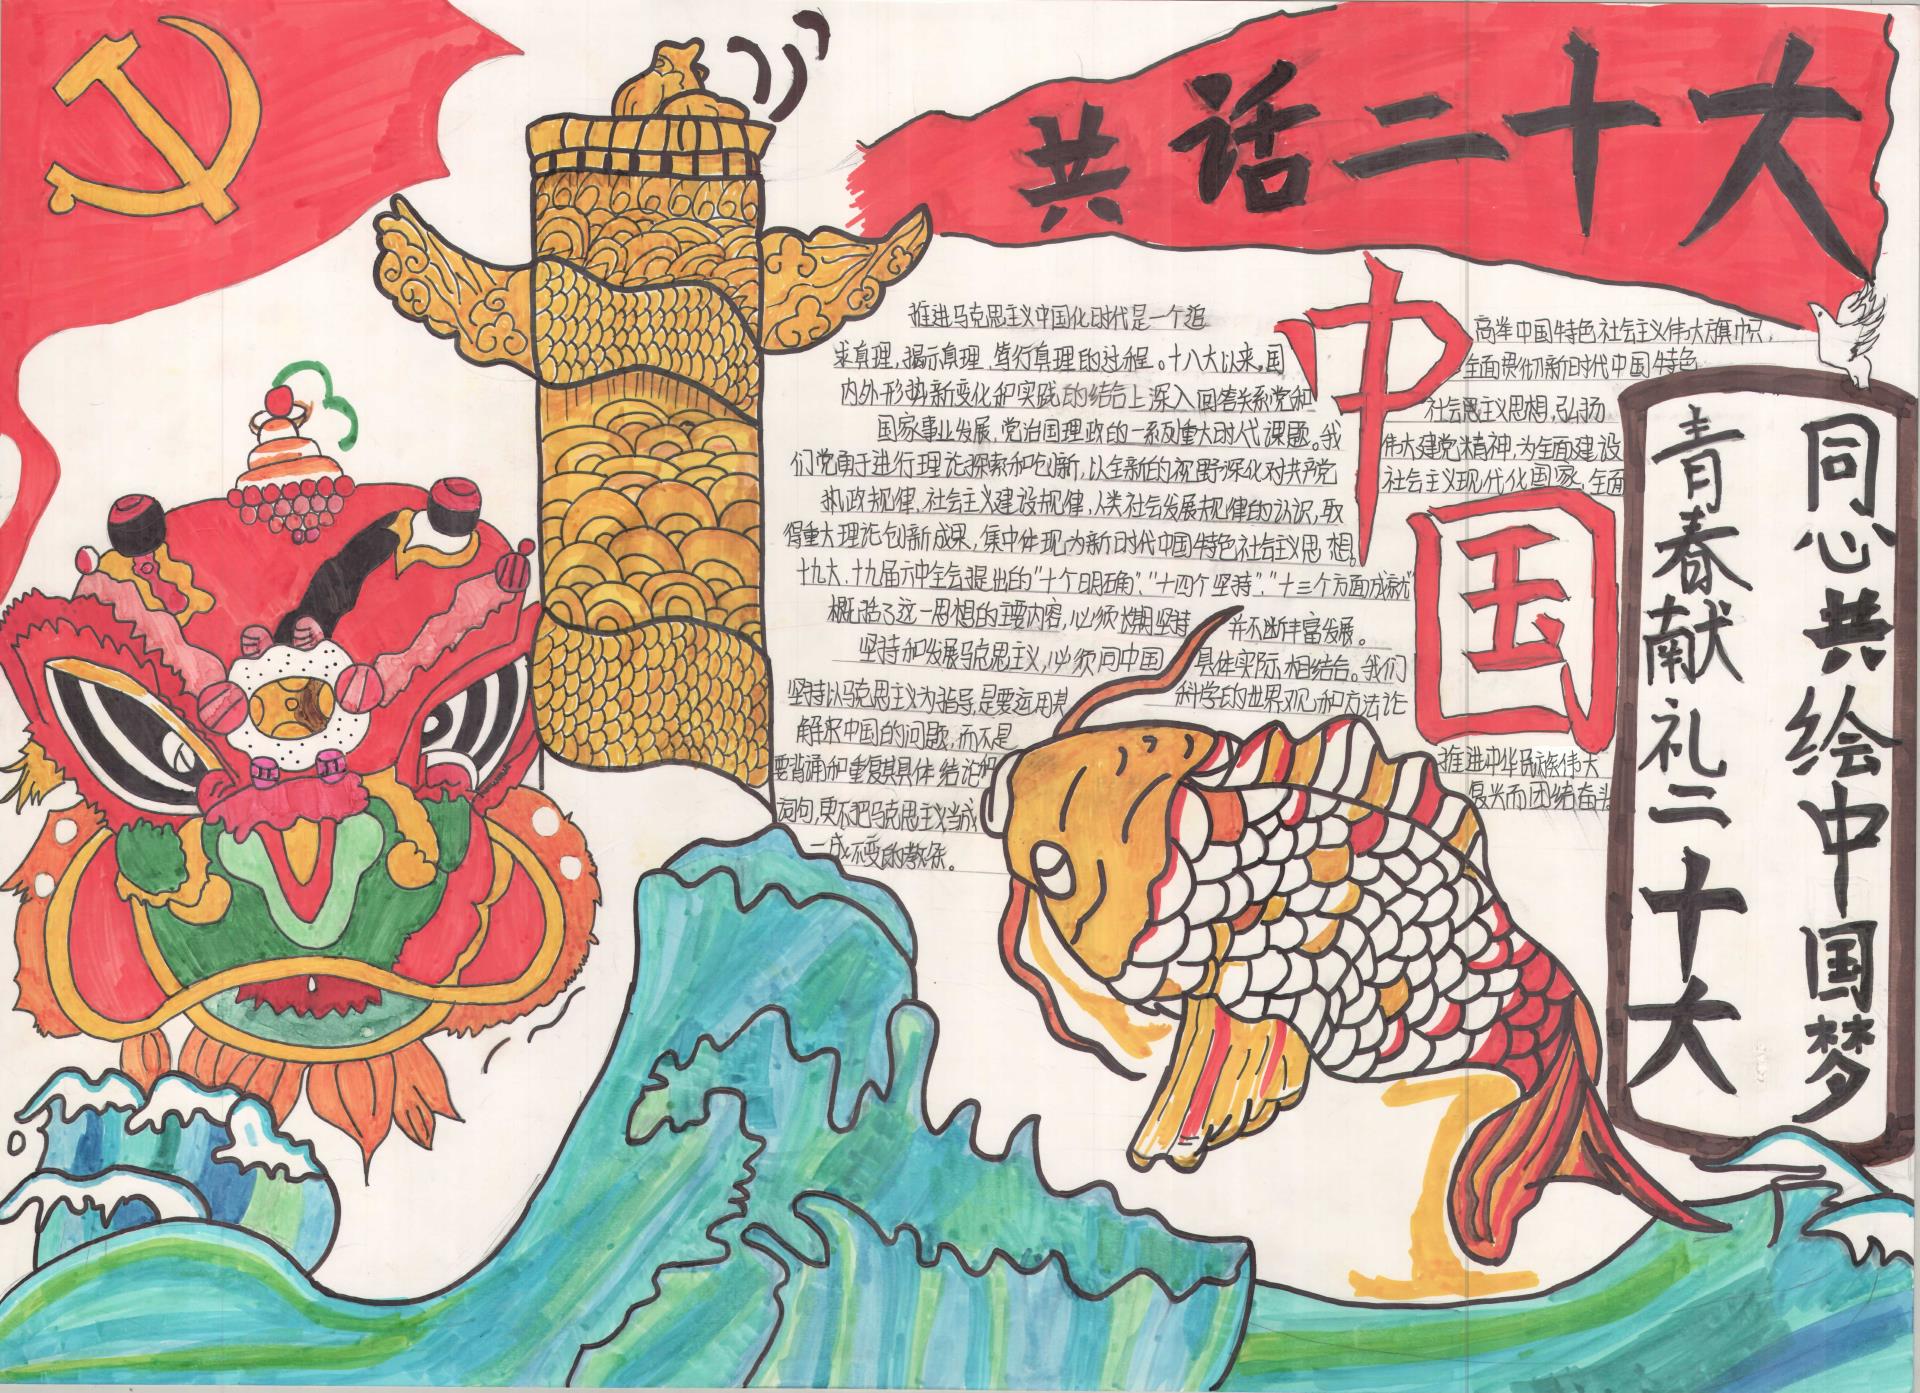 共话二十大
推进马克思主义中国化时代是一个追
求真理,揭示真理,笃行真理的过程。十八大以来,国
内外形势新变化和实践的结合上深入回答关系党和
国家事业发展,党治国理政的一系列重大时代课题。我
们党勇于进行理论探索和创新,以全新的视野深化对共产党
执政规律,社会主义建设规律,人类社会发展规律的认识,取
得重大理论创新成果,集中体现为新时代中国特色社会主义思想。
十九大、十九届六中全会提出的“十个明确”,“十四个坚持”,“十三个方面成就”
概括了这一思想的主要内容,必须长期坚持 并不断丰富发展。
坚持和发展马克思主义,必须同中国 具体实际相结合。我们
坚持以马克思主义为指导,是要运用其 科学的世界观和方法论
解来中国的问题,而不是
要背诵和重复其具体结论和
词句,更不把马克思主义当成
一成不变的教条。
中国
高举中国特色社会主义伟大旗帜,
全面贯彻新时代中国特色
社会主义思想,弘扬
伟大建党精神,为全面建设
社会主义现代化国家,全面
推进中华民族伟大
复兴而团结奋斗
同心共绘中国梦
青春献礼二十大